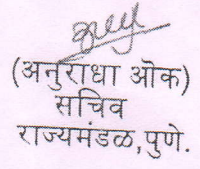 (अनुराधा ओक)
सचिव
राज्यमंडळ, पुणे.